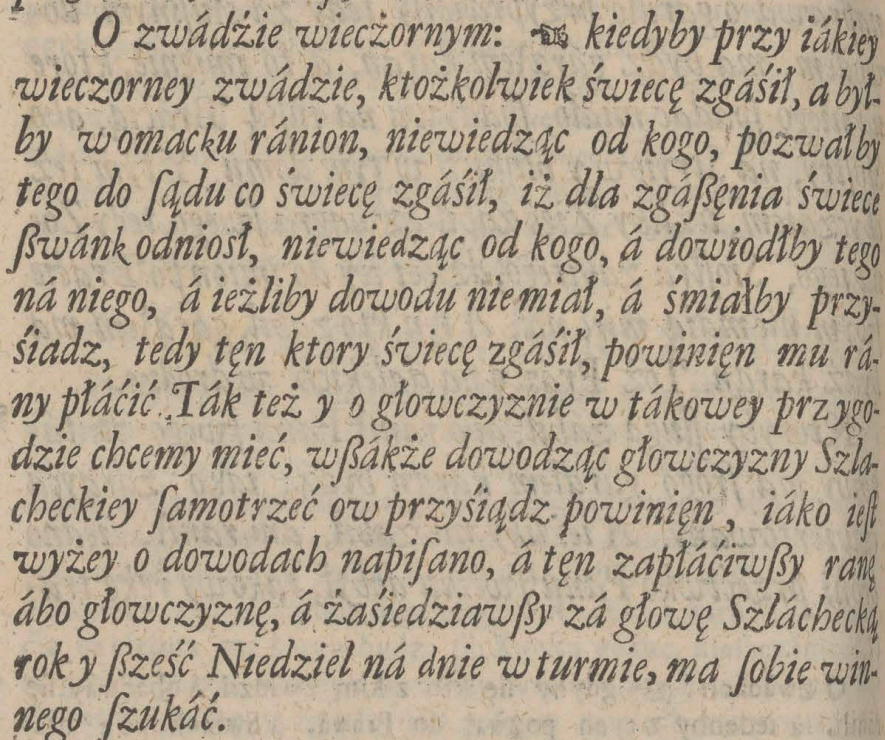 O zwádźie wieczornym: ☜ kiedyby przy iákiey
wieczorney zwádzie, ktożkolwiek świecę zgáśił, a był-
by w omacku ránion, niewiedząc od kogo, pozwałby
tego do ſądu co świecę zgáśił, iż dla zgáßęnia świece
ßwánk odniosł, niewiedząc od kogo, á dowiodłby tego
ná niego, á ieżliby dowodu nie miał, á śmiałby przy-
śiadz, tedy tęn ktory śviecę zgáśił, powinięn mu rá-
ny płáćić. Ták też y o głowczyznie w tákowey przygo-
dzie chcemy mieć, wßákże dowodząc głowczyzny Szla-
checkiey ſamotrzeć ow przyśiądz powinięn, iáko ieſt
wyżey o dowodach napiſano, á tęn zapłáćiwßy ranę
ábo głowczyznę, á żaśiedziawßy zá głowę Szláchecką
rok y ßześć Niedziel ná dnie w turmie, ma ſobie win-
nego ſzukáć.